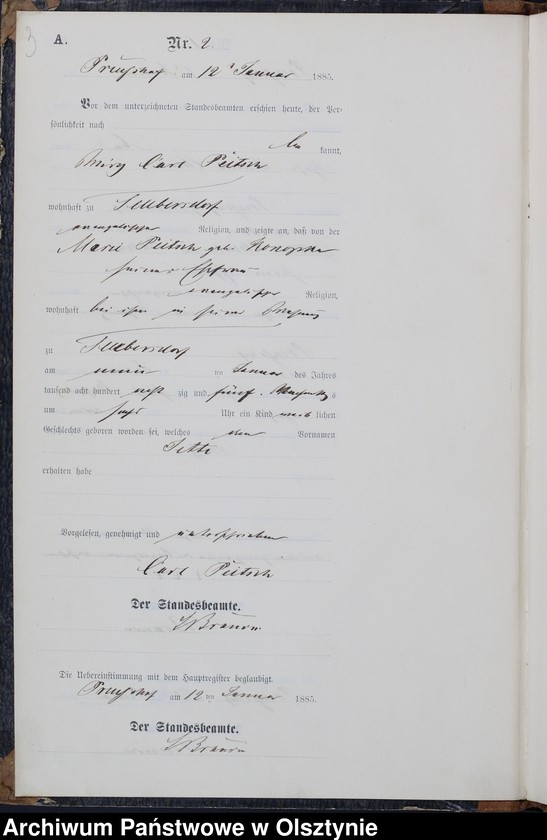 3
A.
Nr. 2.
am 12 Januar 1885.
Vor dem unterzeichneten Standesbeamten erschien heute, der Per-
sönlichkeit nach
be kannt,
Carl Peitsch
wohnhaft zu
evangelischer Religion, und zeigte an, daß von der
Marie Peitsch geb. Konopka
seiner Ehefrau
evangelischer Religion,
wohnhaft bei ihm in seiner Wohnung
zu
am neun ten Januar des Jahres
tausend acht hundert acht zig und fünf
um Uhr ein Kind weib lichen
Geschlechts geboren worden sei, welches den Vornamen
erhalten habe
Vorgelesen, genehmigt und unterschrieben
Carl Peitsch
Der Standesbeamte.
Die Uebereinstimmung mit dem Hauptregister beglaubigt.
am 12 ten Januar 1885.
Der Standesbeamte.
Archiwum Państwowe w Olsztynie